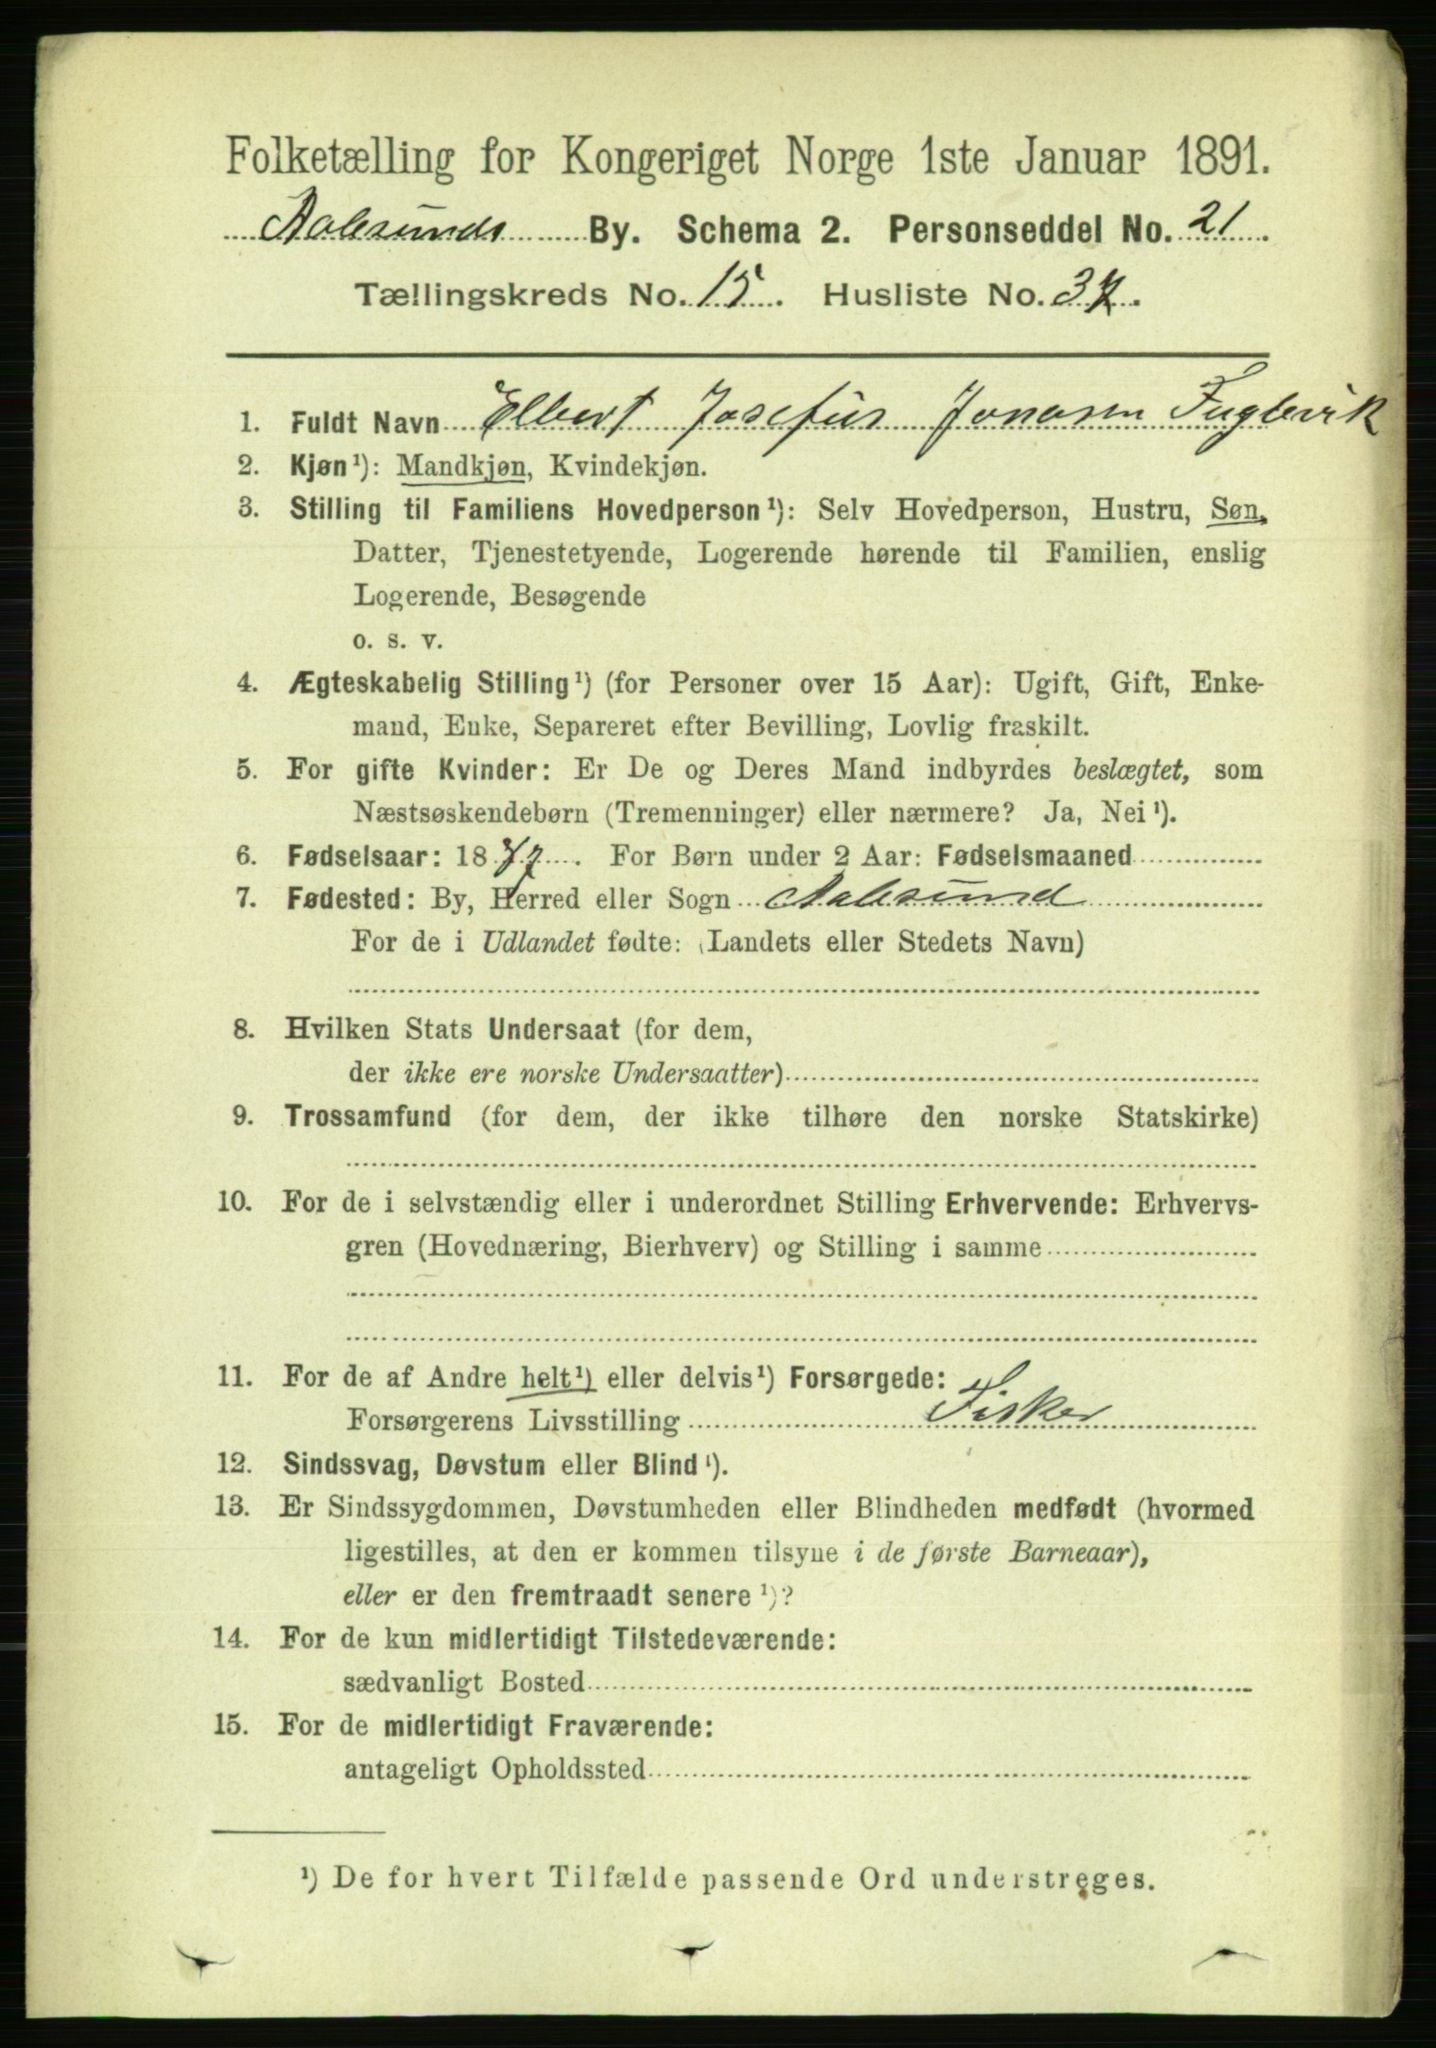 Folketælling for Kongeriget Norge 1ste Januar 1891.
Aalesunds By. Schema 2. Personseddel No. 21.
Tællingskreds No. 15. Husliste No. 37.
1. Fuldt Navn Elbert Josefus Jonasen Fuglevik
2. Kjøn¹): Mandkjøn, Kvindekjøn.
3. Stilling til Familiens Hovedperson¹): Selv Hovedperson, Hustru, Søn,
Datter, Tjenestetyende, Logerende hørende til Familien, enslig
Logerende, Besøgende
o. s. v.
4. Ægteskabelig Stilling¹) (for Personer over 15 Aar): Ugift, Gift, Enke-
mand, Enke, Separeret efter Bevilling, Lovlig fraskilt.
5. For gifte Kvinder: Er De og Deres Mand indbyrdes beslægtet, som
Næstsøskendebørn (Tremenninger) eller nærmere? Ja, Nei¹).
6. Fødselsaar: 1877. For Børn under 2 Aar: Fødselsmaaned
7. Fødested: By, Herred eller Sogn Aalesund
For de i Udlandet fødte: (Landets eller Stedets Navn)
8. Hvilken Stats Undersaat (for dem,
der ikke ere norske Undersaatter)
9. Trossamfund (for dem, der ikke tilhøre den norske Statskirke)
10. For de i selvstændig eller i underordnet Stilling Erhvervende: Erhvervs-
gren (Hovednæring, Bierhverv) og Stilling i samme
11. For de af Andre helt¹) eller delvis¹) Forsørgede:
Forsørgerens Livsstilling Fisker
12. Sindssvag, Døvstum eller Blind¹).
13. Er Sindssygdommen, Døvstumheden eller Blindheden medfødt (hvormed
ligestilles, at den er kommen tilsyne i de første Barneaar),
eller er den fremtraadt senere¹)?
14. For de kun midlertidigt Tilstedeværende:
sædvanligt Bosted
15. For de midlertidigt Fraværende:
antageligt Opholdssted
¹) De for hvert Tilfælde passende Ord understreges.